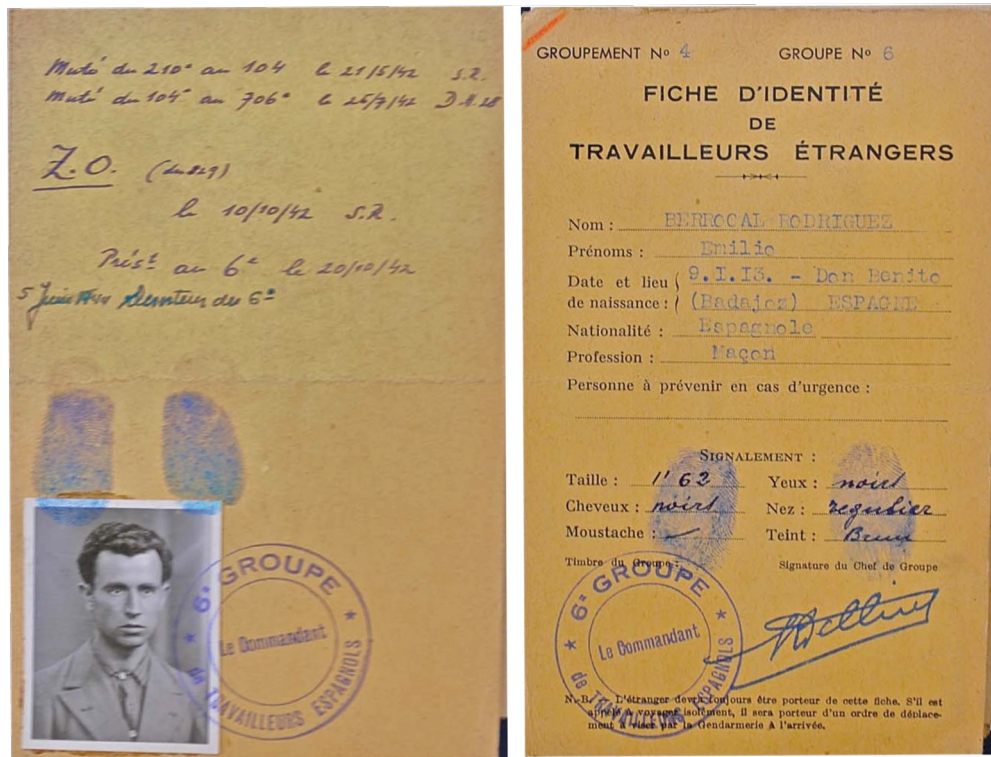 Muté du 210e au 104 le 21/5/42 S.R.
Muté du 104e au 706e le 25/7/42
Z.O. (du 829)
le 10/10/42 S.R.
Prést au 6e le 20/10/42
5 Juin 1944 du 6e
6e GROUPE
Le Commandant
de TRAVAILLEURS ESPAGNOLS
GROUPEMENT No 4 GROUPE No 6
FICHE D'IDENTITÉ
DE
TRAVAILLEURS ÉTRANGERS
Nom : BERROCAL RODRIGUEZ
Prénoms : Emilio
Date et lieu 9.I.I3. - Don Benito
de naissance : (Badajoz) ESPAGNE
Nationalité : Espagnole
Profession : Maçon
Personne à prévenir en cas d'urgence :
SIGNALEMENT :
Taille : 1'62 Yeux : noirs
Cheveux : noirs Nez : regulier
Moustache : Teint : Brun
Timbre du Groupe : Signature du Chef de Groupe
6e GROUPE
Le Commandant
de TRAVAILLEURS ESPAGNOLS
N.-B. L'étranger devra toujours être porteur de cette fiche. S'il est
appelé à voyager isolément, il sera porteur d'un ordre de déplace-
ment à viser par la Gendarmerie à l'arrivée.